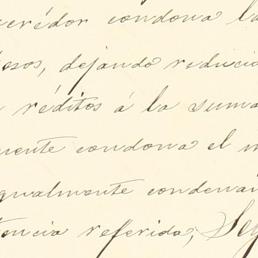 eredor condona la
esos, dejando reduci
réditos á la suma
mente condona el
igualmente condena
tencia referida; Seg